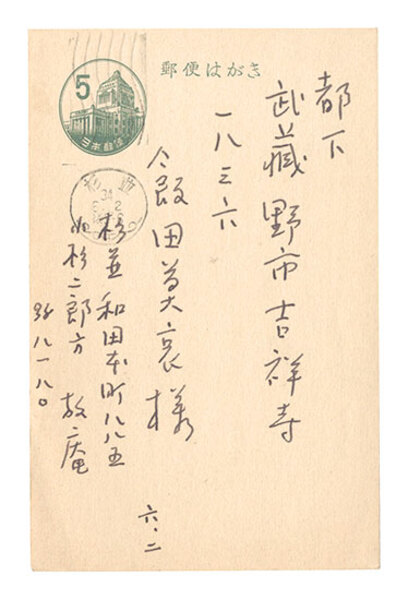 郵便はがき
5
日本郵便
杉並
34
都下
武藏野市吉祥寺
一八三六
飯田莫哀様
杉並和田本町八八五
小杉二郎方 放庵
八一八〇
六、二